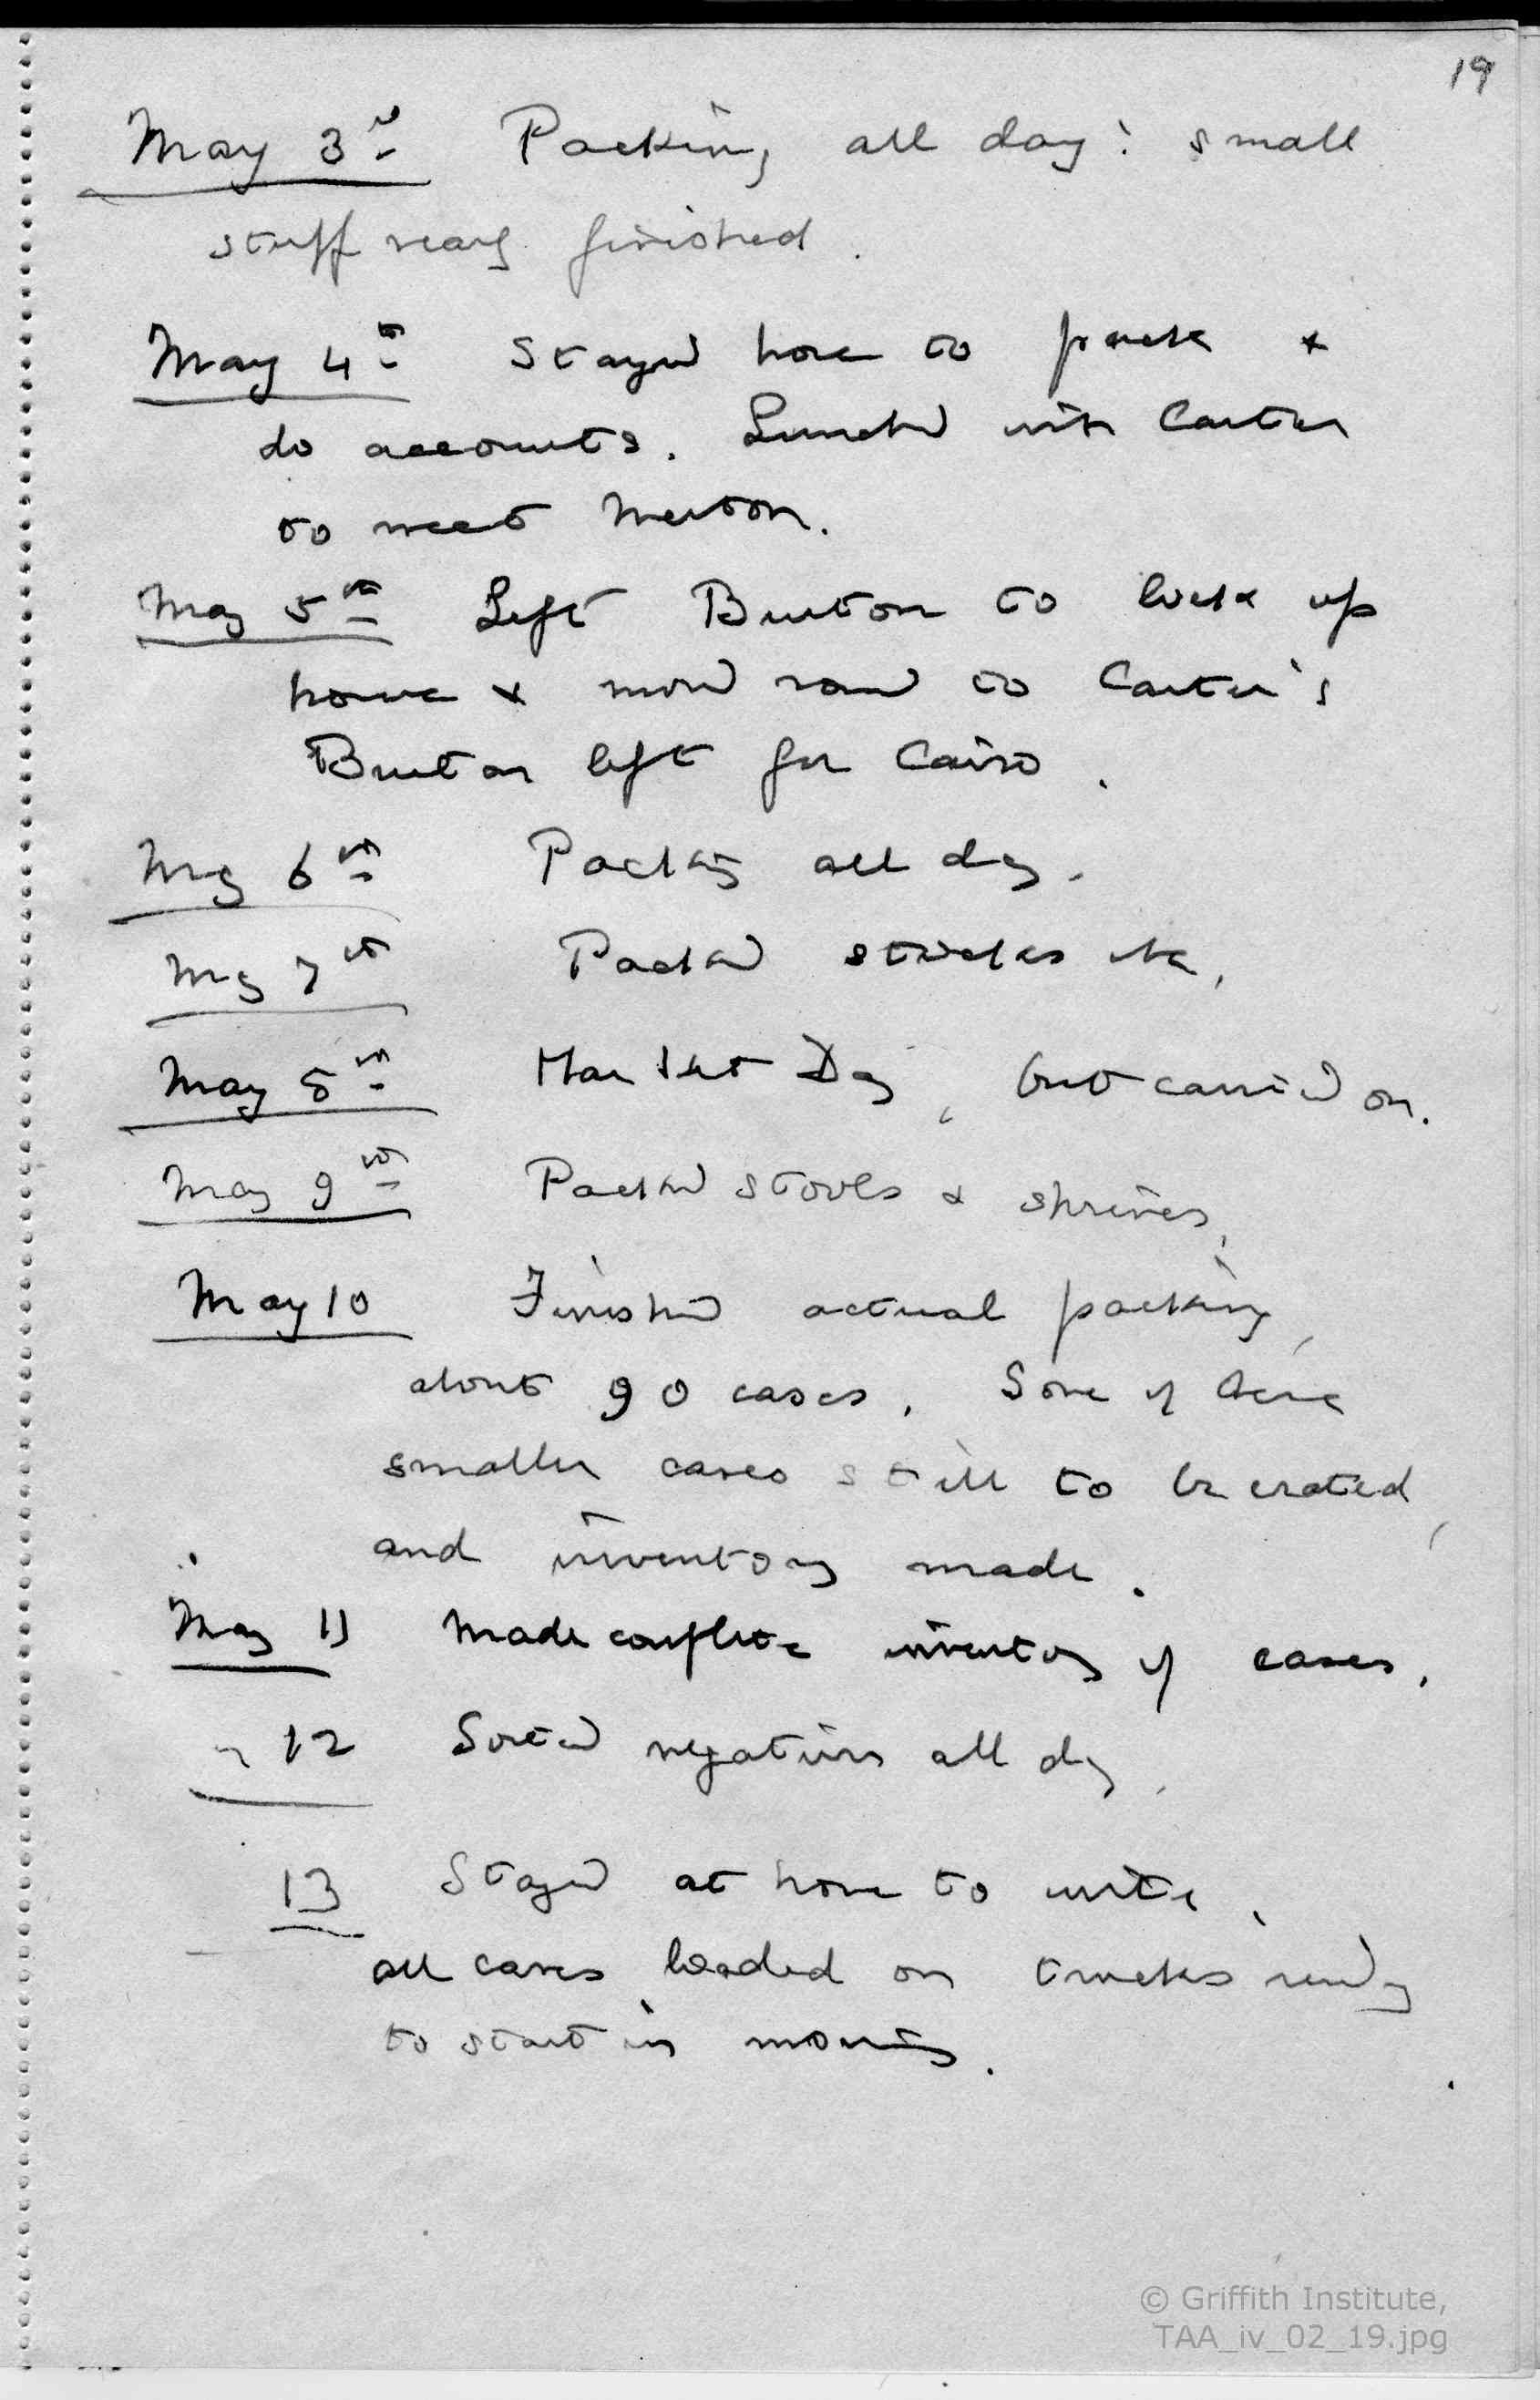 19
May 3rd Packing all day: small
stuff nearly finished.
May 4th Stayed home to pack &
do accounts. Lunched with Carter
to meet Merton.
May 5th Left Burton to lock up
house & moved round to Carter's
Burton left for Cairo.
May 6th Packing all day.
May 7th Packed sticks etc.
May 8th Market Day, but carried on.
May 9th Packed stools & shrines,
May 10 Finished actual packing,
about 90 cases. Some of these
smaller cases still to be crated,
and inventory made.
May 11 Made complete inventory of cases.
" 12 Sorted negatives all day,
13 Stayed at home to write,
all cases loaded on trucks ready
to start in morning.
© Griffith Institute,
TAA_iv_02_19.jpg